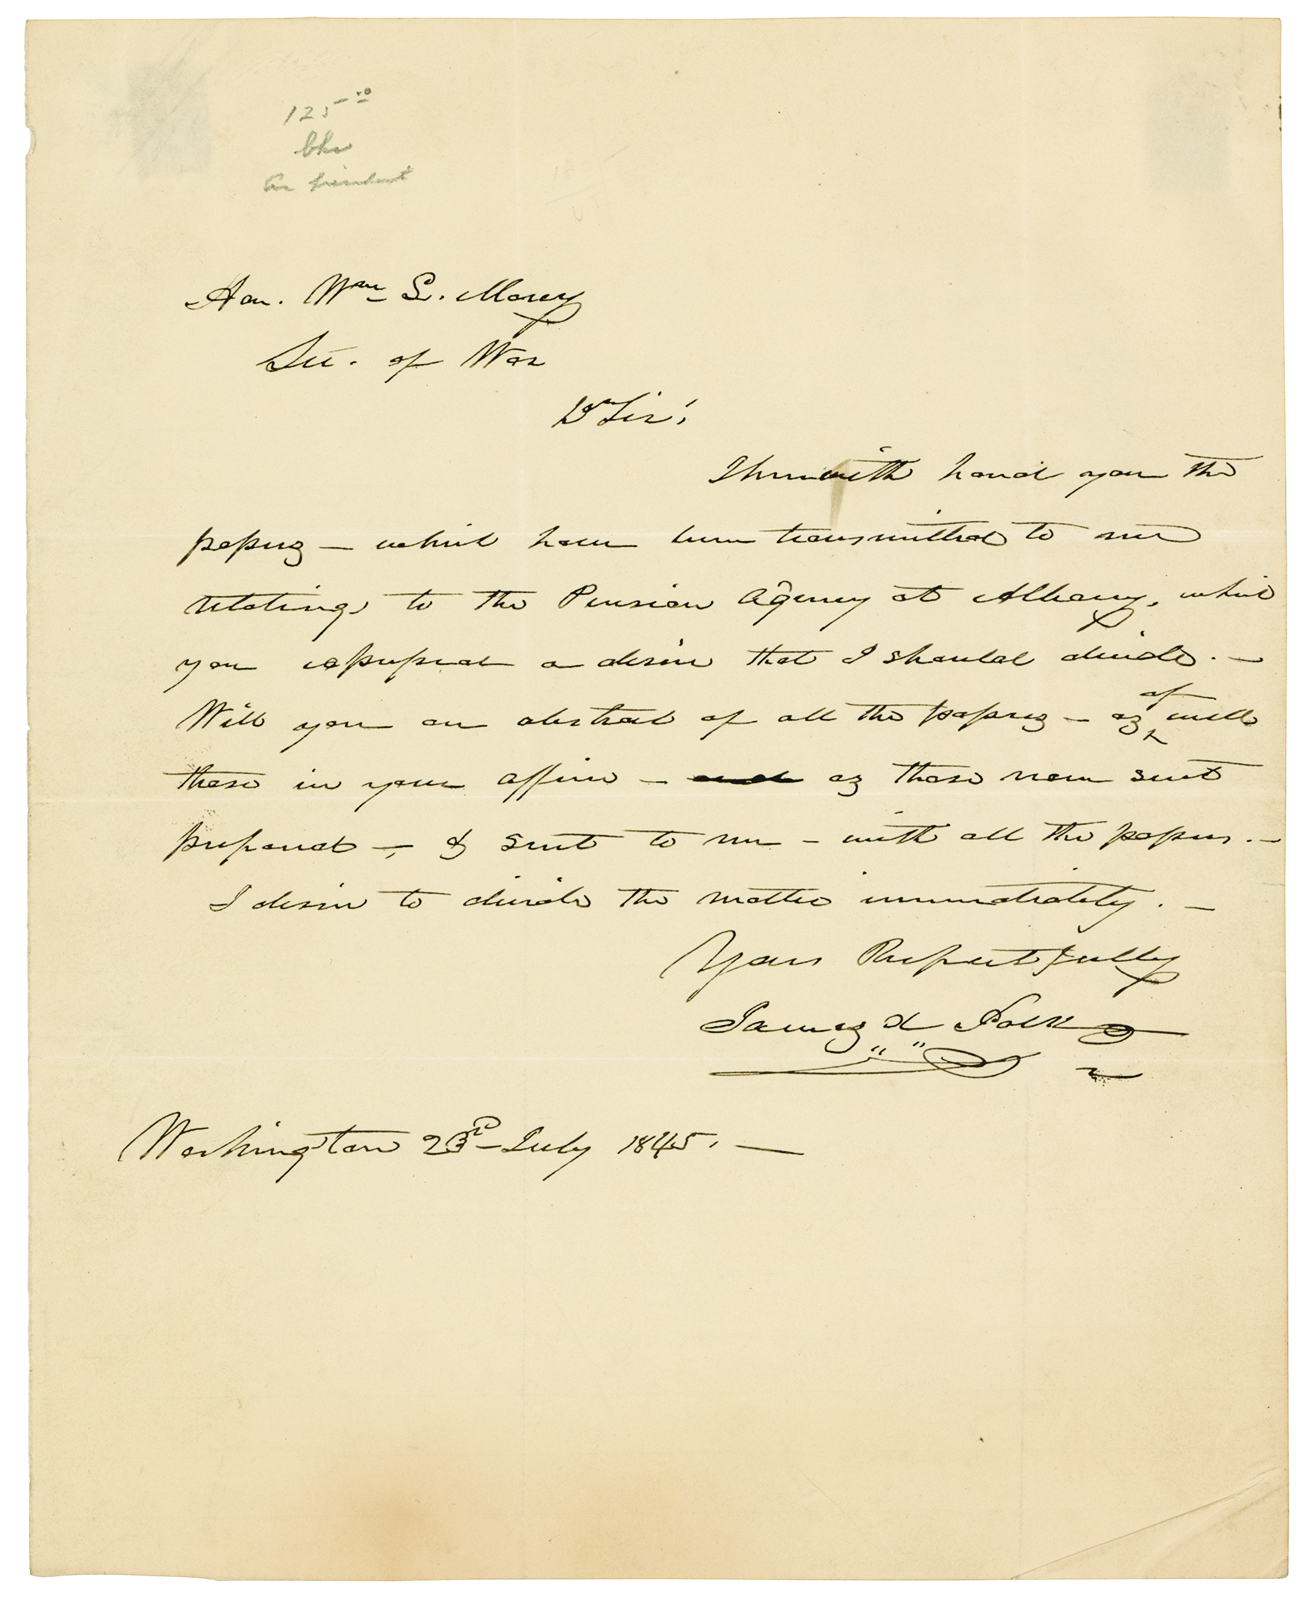 125.00
as president
Hon. Wm L. Marcy
Sec. of War
Dr Sir;
I herewith hand you the
papers – which have been transmitted to me
relating to the Pension Agency at Albany, which
you expressed a desire that I should decide. –
Will you an abstract of all the papers – as of well
those in your office – and as those now sent
prepared –, & sent to me – with all the papers. –
I desire to decide the matter immediately. –
Yours Respectfully
James K Polk
Washington 23rd July 1845. –